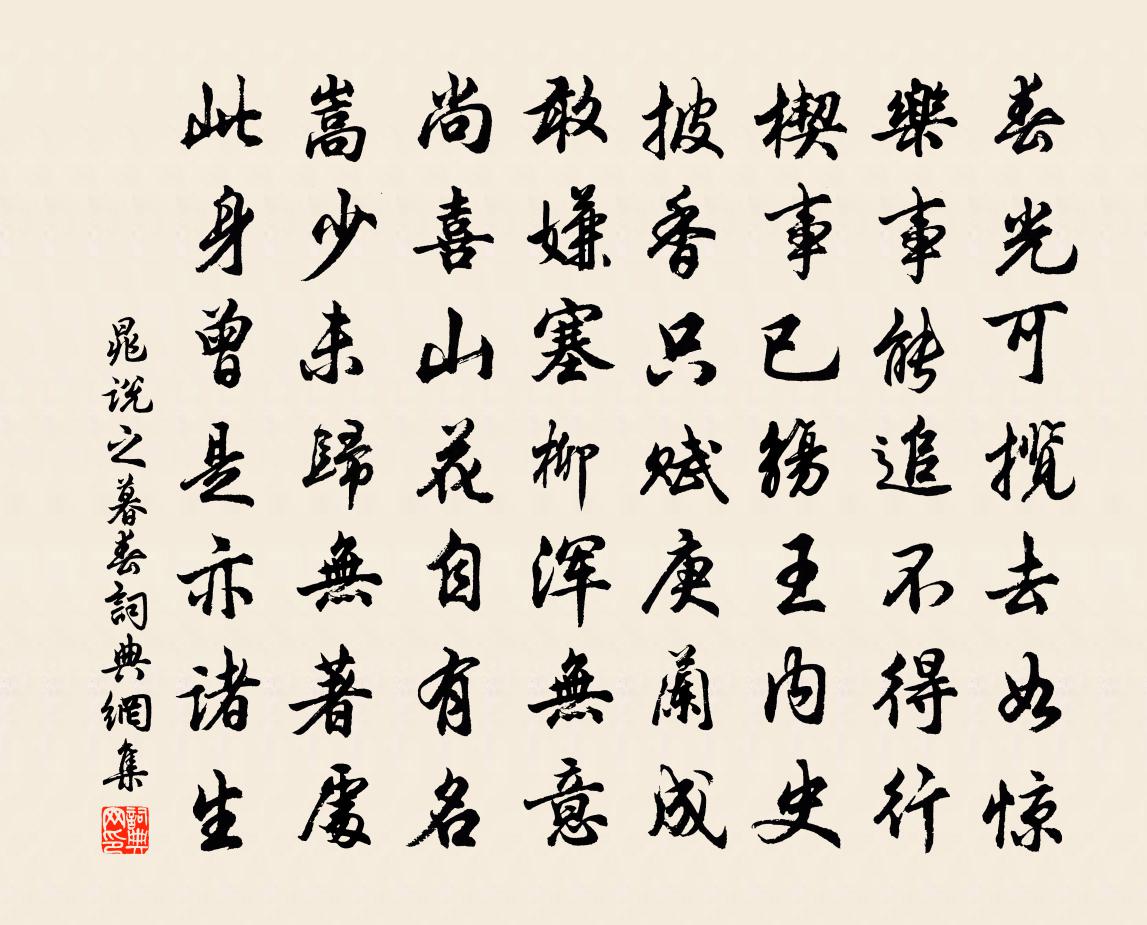 春光可揽去如惊
樂事能追不得行
楔事已觴王内史
披香只赋庚蘭成
敢嫌塞柳浑無意
尚喜山花自有名
嵩少未歸無著處
此身曾是亦诸生
晁说之暮春詞典網集
詞典网印